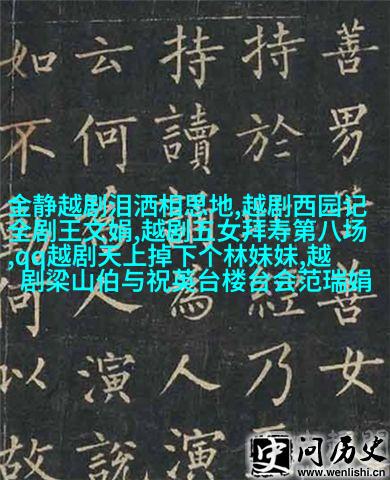 金静越剧泪洒相思地,越剧西园记
全剧王文娟,越剧五女拜寿第八场
,qq越剧天上掉下个林妹妹,越
剧梁山伯与祝英台楼台会范瑞娟
善男女
持於乃
持讀為人演
云何演說
如不何以故
史问历史
www.wenlishi.cn